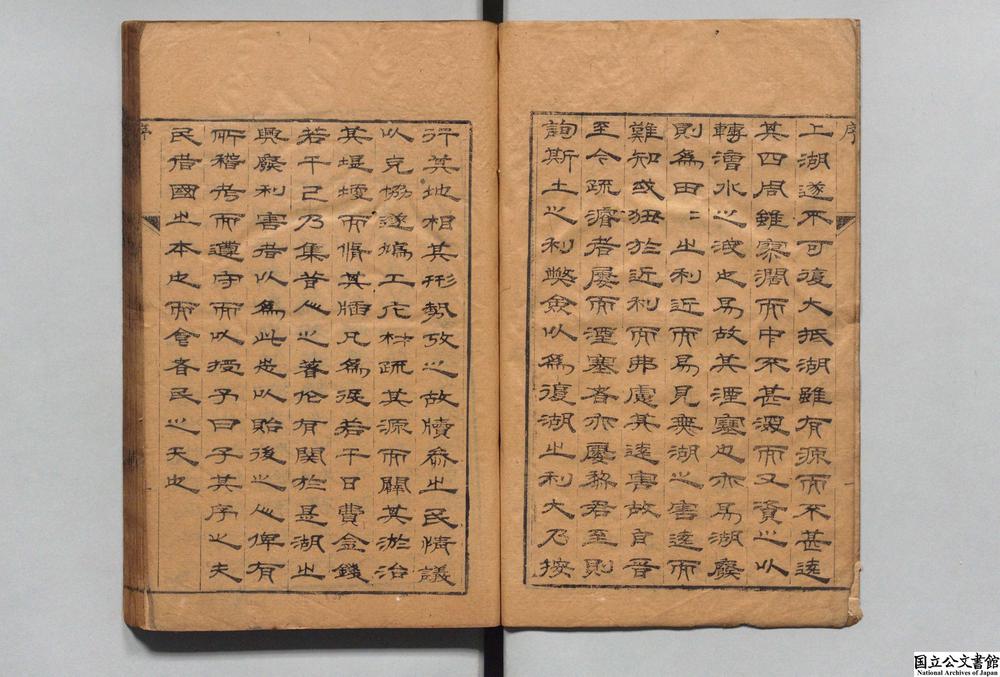 序
上湖遂不可復大抵湖雖有源而不甚遠
其四周雖寥濶而中不甚深而又資之以
轉漕水之洩也易故其湮塞也亦易湖廢
則為田〻之利近而易見無湖之害遠而
難知或狃於近利而弗慮其遠害故自晉
至今疏濬者屢而湮塞者亦屢黎君至則
詢斯土之利弊僉以為復湖之利大乃按
行其地相其形勢攷之故牘叅之民情議
以克協遂鳩工庀材疏其源而闢其淤治
其堤而脩其牐凡為若干日費金錢
若干已乃集昔人之著作有関於是湖之
興廢利害者以為此志以貽後之人俾有
所稽考而遵守而以授予曰子其序之夫
民國之本也而食者民之天也
序
国立公文書館
National Archives of Japan